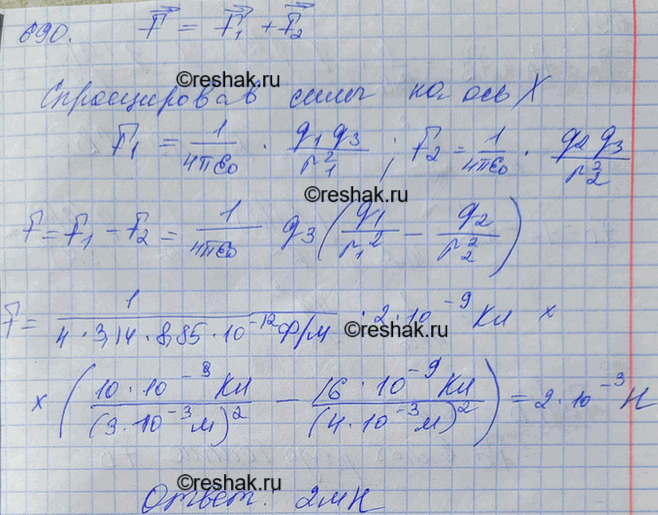 690. F⃗ = F⃗₁ + F⃗₂
©reshak.ru
Спроецировав силы на ось X
F₁ = 1/4πε₀ · q₁q₃/r₁² ; F₂ = 1/4πε₀ · q₂q₃/r₂²
©reshak.ru
F = F₁ − F₂ = 1/4πε₀ q₃ (q₁/r₁² − q₂/r₂²)
F = 1/4·3,14·8,85·10⁻¹² Ф/м · 2·10⁻⁹ Кл ×
©reshak.ru
× (10·10⁻⁹ Кл/(3·10⁻³ м)² − 16·10⁻⁹ Кл/(4·10⁻³ м)²) = 2·10⁻³ Н
©reshak.ru
Ответ. 2мН